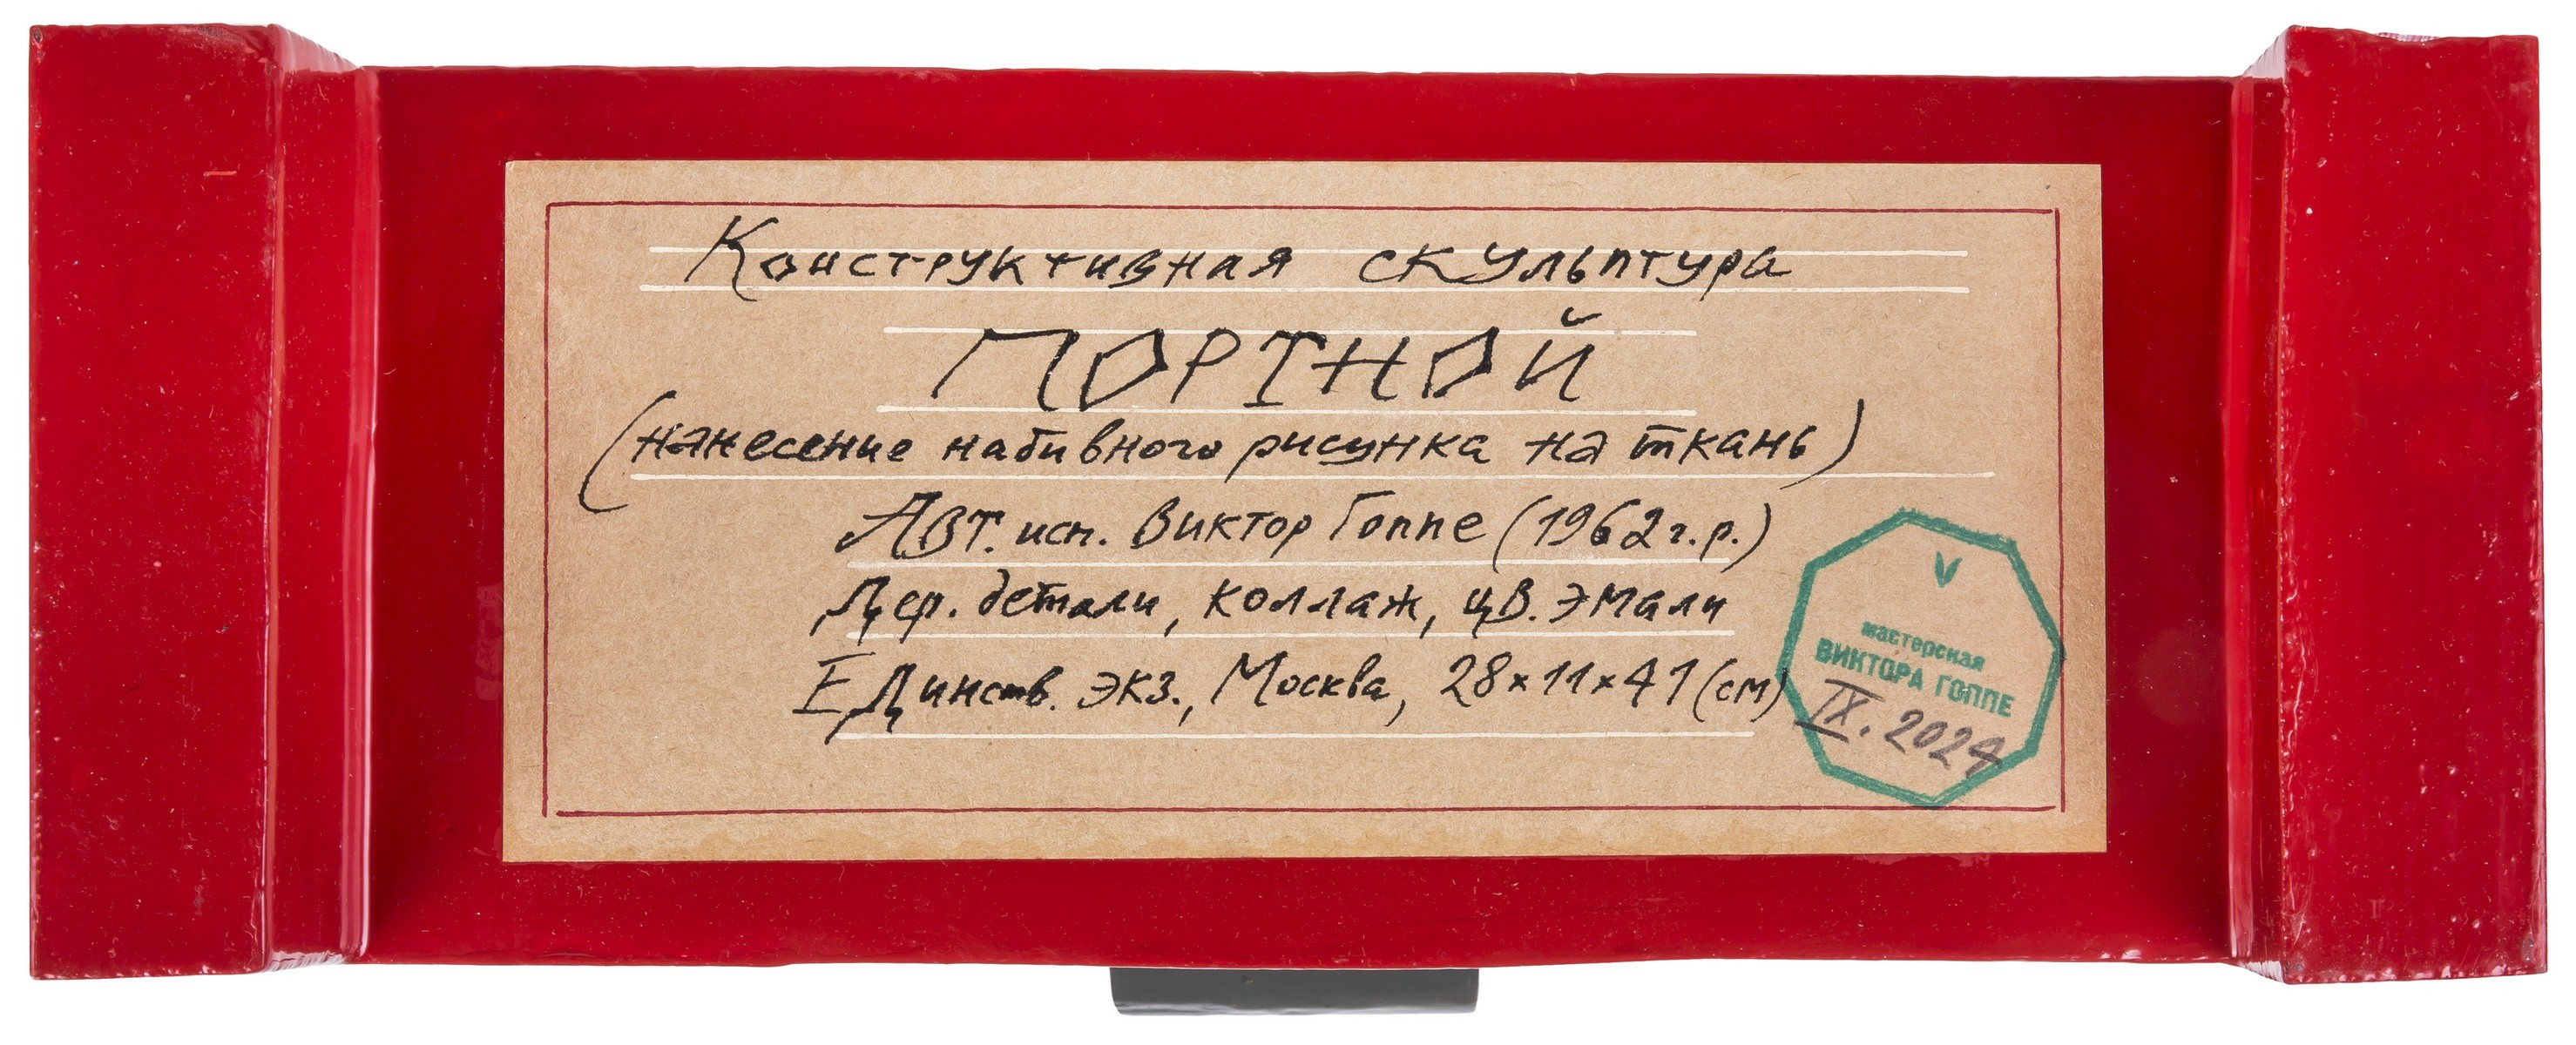 Конструктивная скульптура
ПОРТНОЙ
(нанесение набивного рисунка на ткань)
Авт. исп. Виктор Гоппе (1962 г.р.)
Дер. детали, коллаж, цв. эмали
Единств. экз., Москва, 28×11×41 (см)
V
мастерская
ВИКТОРА ГОППЕ
IX. 2024